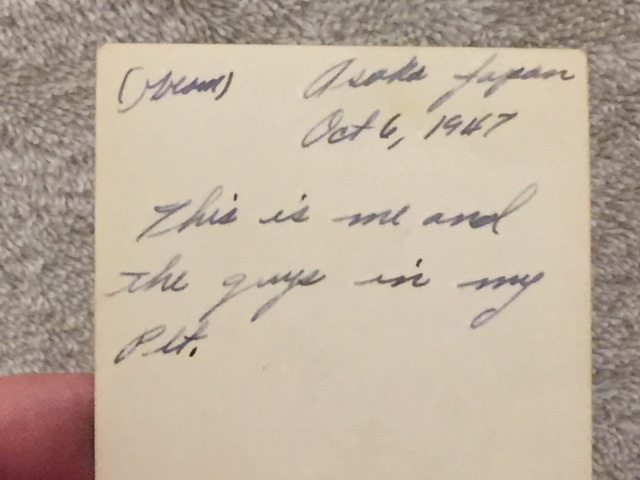 Asaka Japan
Oct 6, 1947
This is me and
the guys in my
Plt.